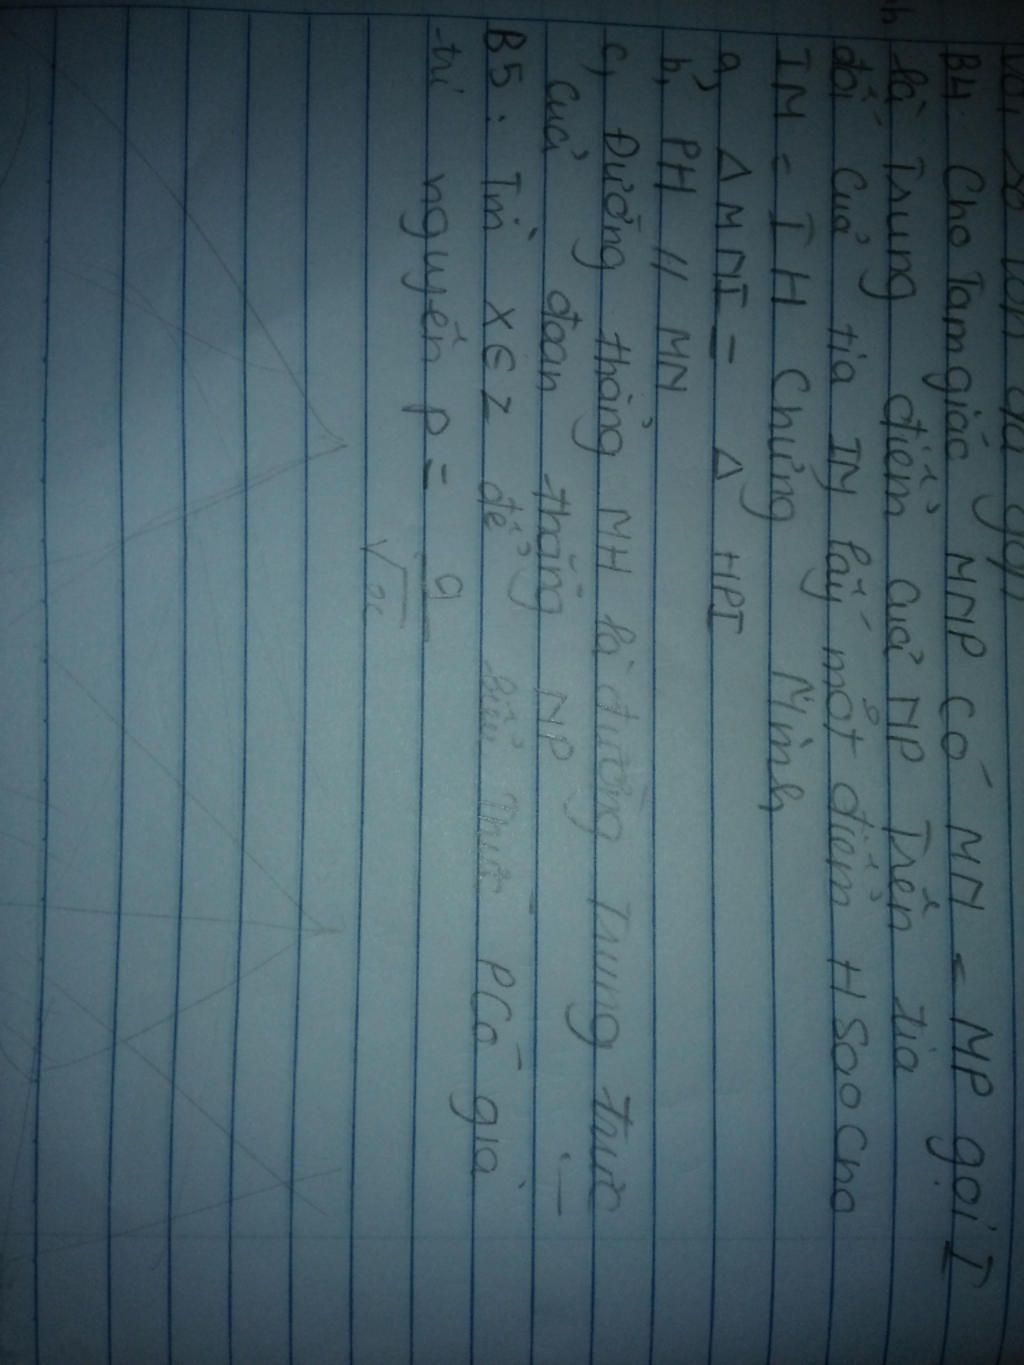 B4: Cho Tam giác MNP Có MN = MP gọi I
là Trung điểm Của NP Trên tia
đối Của tia IM lấy một điểm H Sao Cho
IM = IH Chứng Minh
a, Δ MNI = Δ HPI
b, PH // MN
c, Đường thẳng MH là đường Trung trực
Của đoạn thẳng NP
B5: Tìm x ∈ Z để biểu Thức P Có giá
trị nguyên P = 9/√x